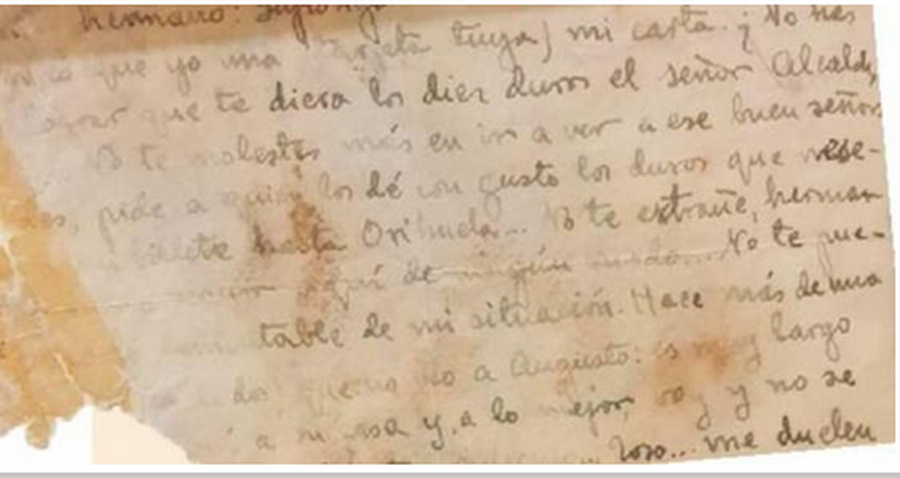 hermano: Supongo
que yo una tarjeta tuya) mi carta. ¿No has
que te diera los diez duros el señor Alcalde,
No te molestes más en ir a ver a ese buen señor
pide a quien los dé con gusto los duros que nece-
billete hasta Orihuela... No te extrañe, herman
aquí de ningún modo... No te pue-
table de mi situación. Hace más de una
que no veo a Augusto: es muy largo
a su casa y, a lo mejor, voy y no se
me duelen